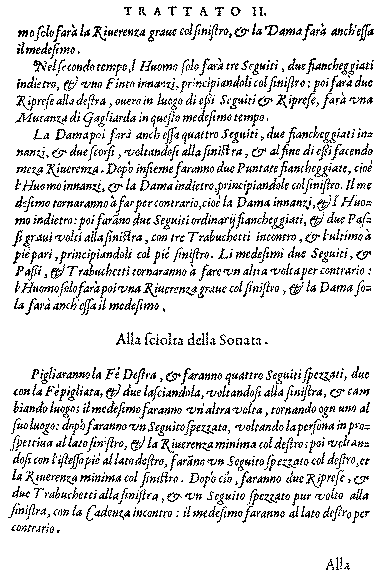 TRATTATO II.
mo solo farà la Riuerenza graue col sinistro, & la Dama farà anch'essa
il medesimo.
Nel secondo tempo, l Huomo solo farà tre Seguiti, due fiancheggiati
indietro, & vno Finto innanzi, principiandoli col sinistro: poi farà due
Riprese alla destra, ouero in luogo di essi Seguiti & Riprese, farà vna
Mutanza di Gagliarda in questo medesimo tempo.
La Dama poi farà anch essa quattro Seguiti, due fiancheggiati in-
nanzi, & due scorsi, voltandosi alla sinistra, & al fine di essi facendo
meza Riuerenza. Dopò insieme faranno due Puntate fiancheggiate, cioè
l'Huomo innanzi, & la Dama indietro, principiandole col sinistro. Il me
desimo tornaranno à far per contrario, cioè la Dama innanzi, & l'Huo-
mo indietro: poi faranno due Seguiti ordinarij fiancheggiati, & due Pas-
si graui volti alla sinistra, con tre Trabuchetti incontro, & l'ultimo à
piè pari, principiandoli col piè sinistro. Li medesimi due Seguiti, &
Passi, & Trabuchetti tornaranno à fare vn altra volta per contrario:
l'Huomo solo farà poi vna Riuerenza graue col sinistro, & la Dama so-
la farà anch'essa il medesimo.
Alla sciolta della Sonata.
Pigliaranno la Fè Destra, & faranno quattro Seguiti spezzati, due
con la Fè pigliata, & due lasciandola, voltandosi alla sinistra, & cam
biando luogo: il medesimo faranno vn'altra volta, tornando ogn uno al
suo luogo: dopò faranno vn Seguito spezzato, voltando la persona in pro-
spettiua al lato sinistro, & la Riuerenza minima col destro: poi voltan-
dosi con l'istesso piè al lato destro, faranno vn Seguito spezzato col destro, et
la Riuerenza minima col sinistro. Dopò ciò, faranno due Riprese, &
due Trabuchetti alla sinistra, & vn Seguito spezzato pur volto alla
sinistra, con la Cadenza incontro: il medesimo faranno al lato destro per
contrario.
Alla